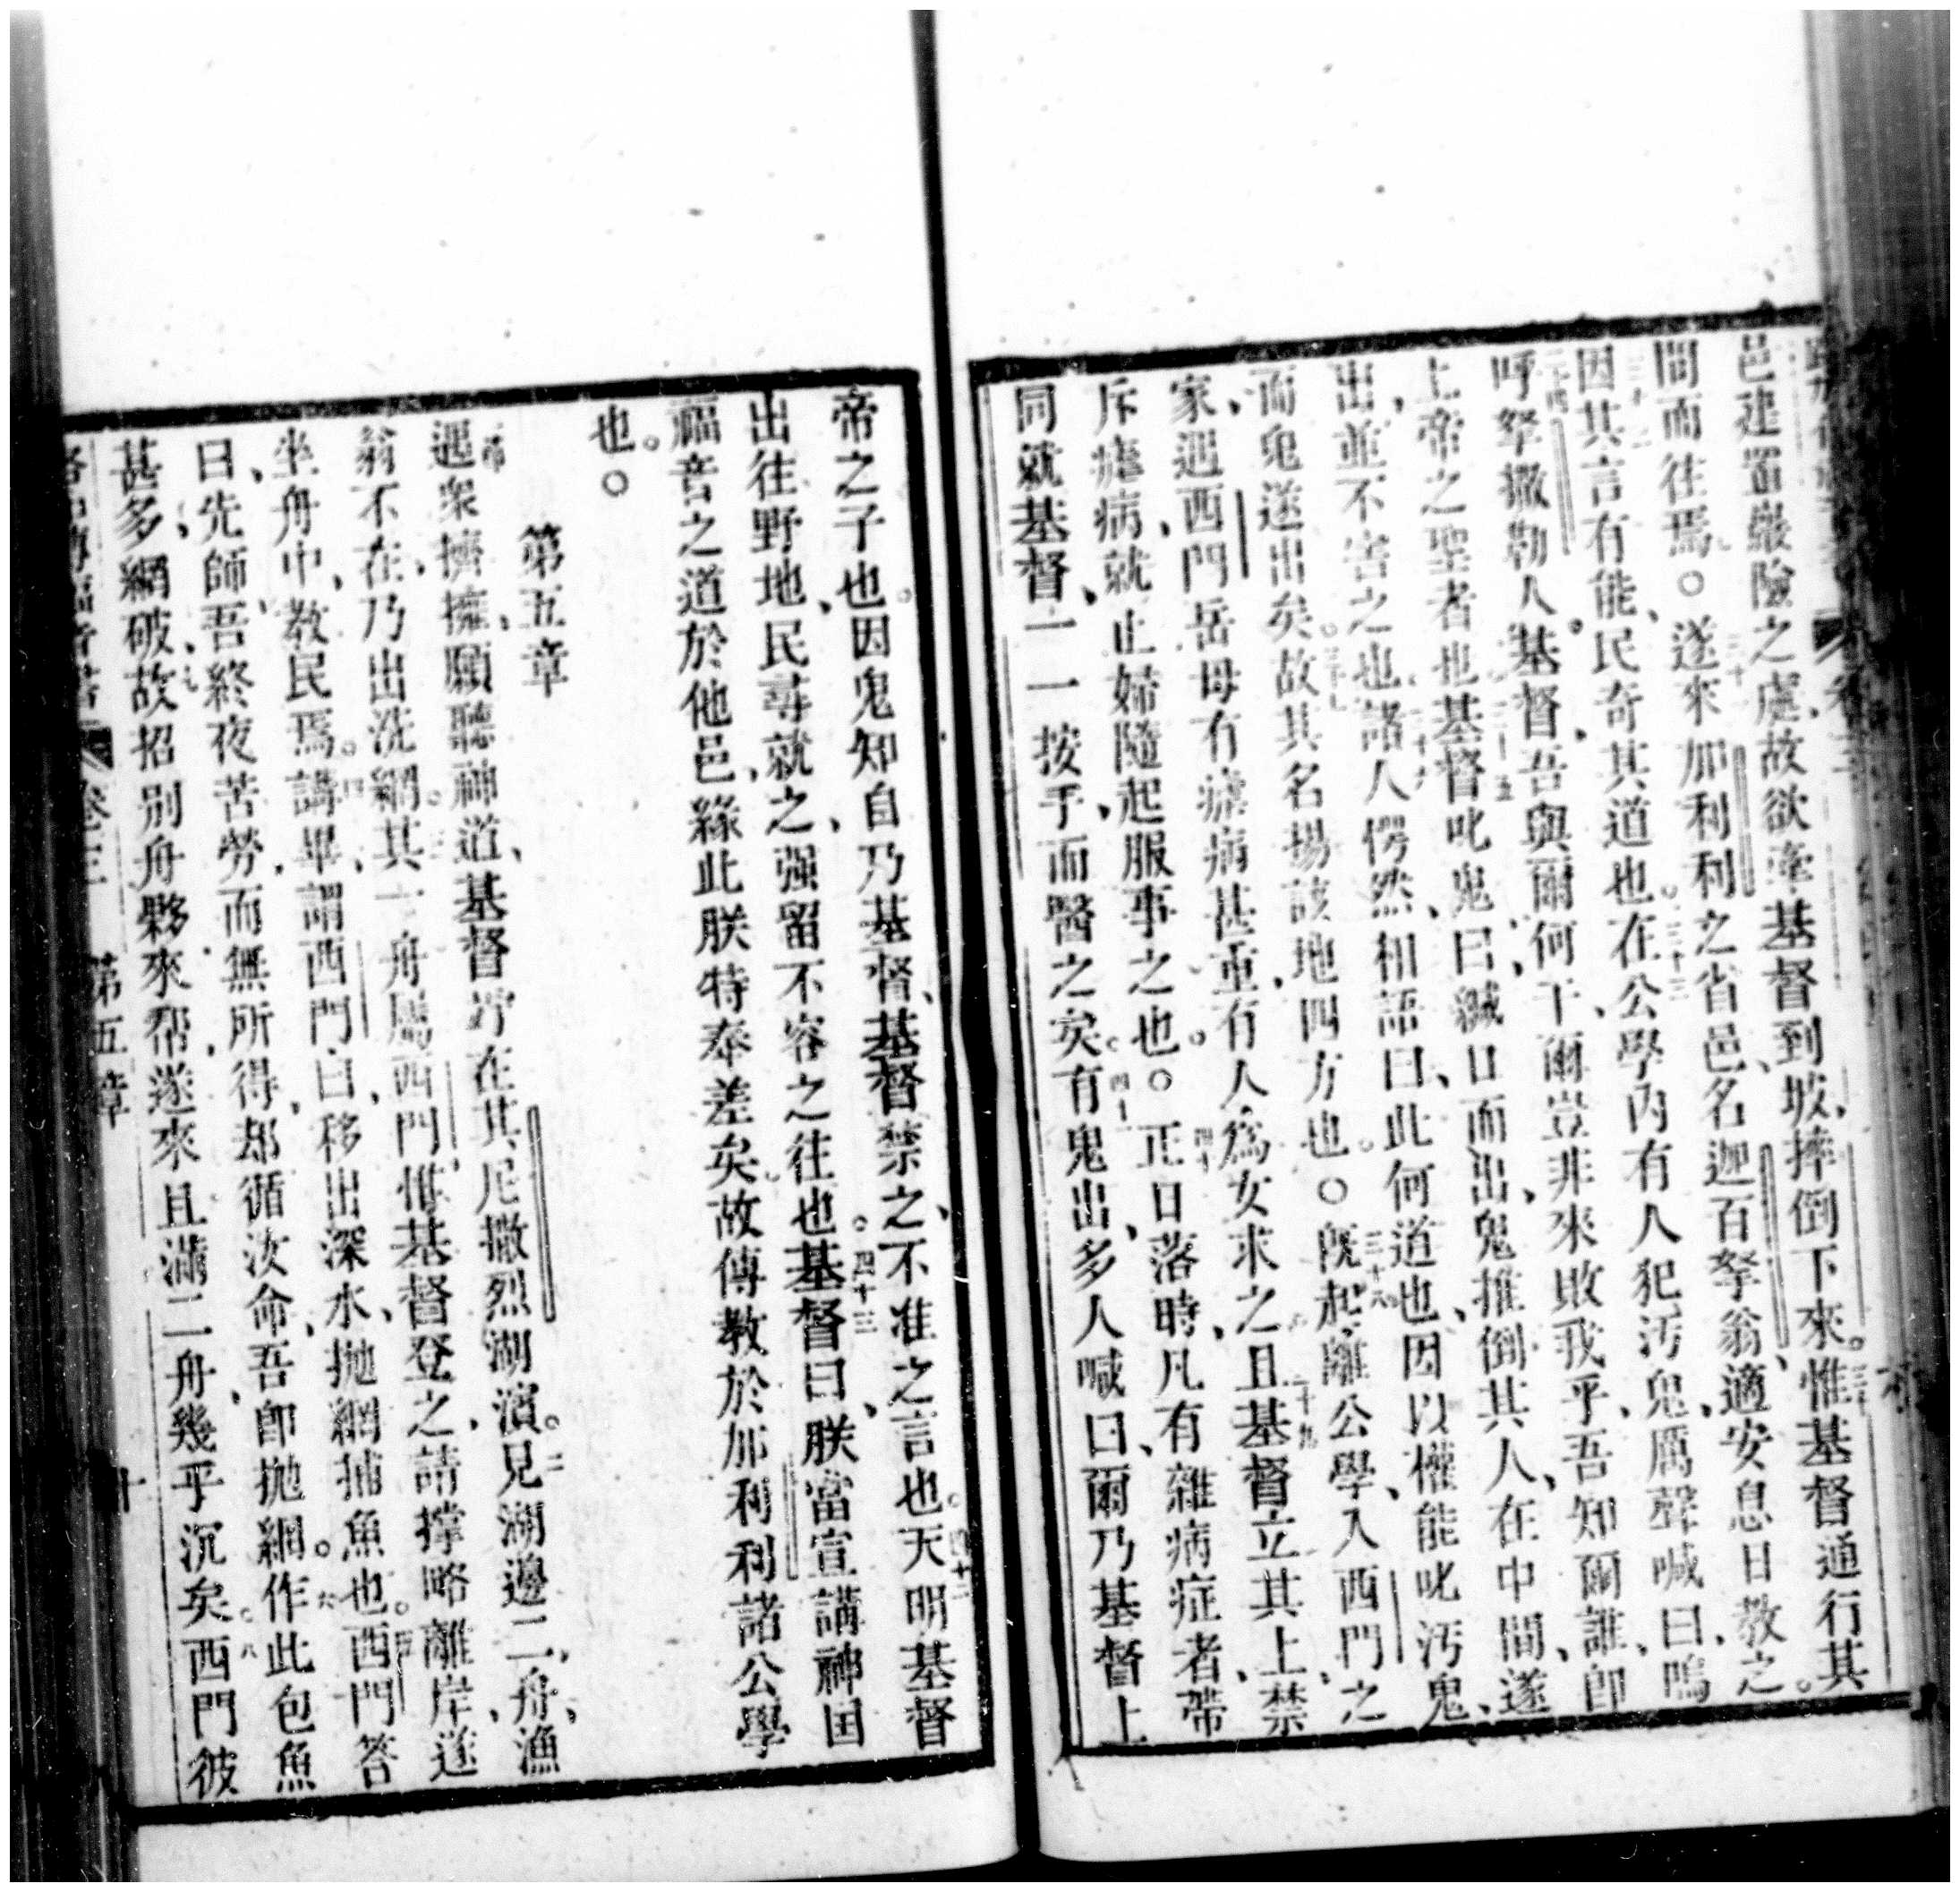 邑建置巖險之處、故欲牽基督到坡、摔倒下來。惟基督通行其
間而往焉。○遂來加利利之省邑、名迦百拏翁、適安息日教之。
因其言有能、民奇其道也。在公學內有人犯汚鬼、厲聲喊曰、嗚
呼拏撒勒人基督、吾與爾何干、爾豈非來敗我乎、吾知爾誰、卽
上帝之聖者也。基督叱鬼曰、緘口而出、鬼推倒其人、在中間、遂
出、並不害之也。諸人愕然、相語曰、此何道也、因以權能叱汚鬼、
而鬼遂出矣。故其名揚該地四方也。○旣起、離公學、入西門之
家、遇西門岳母有瘧病甚重、有人爲女求之。且基督立其上、禁
斥瘧病、就止、婦隨起服事之也。○正日落時、凡有雜病症者、帶
同就基督、一一按手、而醫之矣。有鬼出、多人喊曰、爾乃基督上
帝之子也。因鬼知自乃基督、基督禁之、不准之言也。天明基督
出往野地、民尋就之、强留不容之往也。基督曰、朕當宣講神国
福音之道於他邑、緣此朕特奉差矣。故傳教於加利利諸公學
也。○
第五章
遇衆擠擁、願聽神道、基督竚在其尼撒烈湖濱。見湖邊二舟、漁
翁不在、乃出洗網。其一舟屬西門、惟基督登之、請撐略離岸、遂
坐舟中、教民焉。講畢、謂西門曰、移出深水、抛網捕魚也。西門答
曰、先師、吾終夜苦勞、而無所得、却循汝命、吾卽抛網。作此包魚
甚多、網破、故招別舟夥來帮、遂來且滿二舟、幾乎沉矣。西門彼
路加傳福音書 卷三 第五章 十